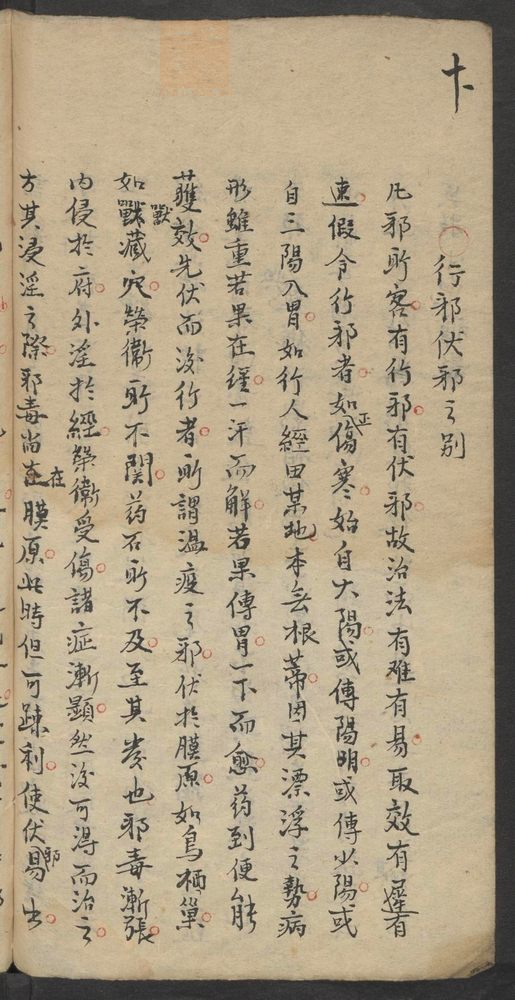 卞
行邪伏邪之別
凡邪所客有行邪有伏邪故治法有难有易取效有遲有
速假令行邪者如正傷寒始自太陽或傳陽明或傳少陽或
自三陽入胃如行人經由某地本無根蒂因其漂浮之勢病
形雖重若果在經一汗而解若果傳胃一下而愈药到便能
獲效先伏而後行者所謂温疫之邪伏於膜原如鳥栖巢
如獸藏穴榮衞所不関药石所不及至其發也邪毒漸張
内侵於府外淫於經榮衞受傷諸症漸顯然後可得而治之
方其浸淫之際邪毒尚在膜原此時但可疎利使伏邪易出